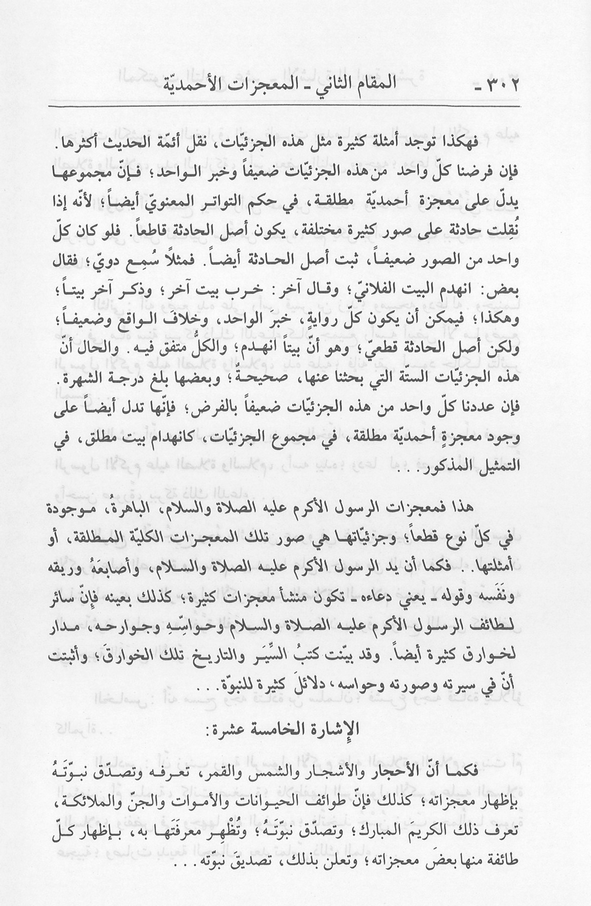 ٣٠٢ - المقام الثاني - المعجزات الأحمديّة
فهكذا توجد أمثلة كثيرة مثل هذه الجزئيّات، نقل أئمّة الحديث أكثرها.
فإن فرضنا كلّ واحد من هذه الجزئيّات ضعيفاً وخبر الواحد؛ فإنّ مجموعها
يدلّ على معجزة أحمديّة مطلقة، في حكم التواتر المعنويّ أيضاً؛ لأنه إذا
نُقِلت حادثة على صور كثيرة مختلفة، يكون أصل الحادثة قاطعاً. فلو كان كلّ
واحد من الصور ضعيفاً، ثبت أصل الحادثة أيضاً. فمثلاً سُمِع دويّ؛ فقال
بعض: انهدم البيت الفلانيّ؛ وقال آخر: خرب بيت آخر؛ وذكر آخر بيتاً؛
وهكذا؛ فيمكن أن يكون كلّ روايةٍ، خبرَ الواحد، وخلاف الواقع وضعيفاً؛
ولكن أصل الحادثة قطعيّ؛ وهو أنّ بيتاً انهدم؛ والكلُّ متفق فيه. والحال أنّ
هذه الجزئيّات الستّة التي بحثنا عنها، صحيحةٌ؛ وبعضها بلغ درجة الشهرة.
فإن عددنا كلّ واحد من هذه الجزئيّات ضعيفاً بالفرض؛ فإنّها تدل أيضاً على
وجود معجزةٍ أحمديّة مطلقة، في مجموع الجزئيّات، كانهدام بيت مطلق، في
التمثيل المذكور...
هذا فمعجزات الرسول الأكرم عليه الصلاة والسلام، الباهرةُ، موجودة
في كلّ نوع قطعاً؛ وجزئيّاتها هي صور تلك المعجزات الكليّة المطلقة، أو
أمثلتها.. فكما أن يد الرسول الأكرم عليه الصلاة والسلام، وأصابعَهُ وريقه
ونَفَسه وقوله - يعني دعاءه - تكون منشأ معجزات كثيرة؛ كذلك بعينه فإنّ سائر
لطائف الرسول الأكرم عليه الصلاة والسلام وحواسّه وجوارحه، مدار
لخوارق كثيرة أيضاً. وقد بيّنت كتبُ السِّيَر والتاريخ تلك الخوارقَ؛ وأثبتت
أنّ في سيرته وصورته وحواسه، دلائلَ كثيرة للنبوّة...
الإشارة الخامسة عشرة:
فكما أنّ الأحجار والأشجار والشمس والقمر، تعرفه وتصدّق نبوّتَهُ
بإظهار معجزاته؛ كذلك فإنّ طوائف الحيوانات والأموات والجنّ والملائكة،
تعرف ذلك الكريمَ المبارك؛ وتصدّق نبوّتَهُ؛ وتُظْهِر معرفَتَها به، بإظهار كلّ
طائفة منها بعضَ معجزاته؛ وتعلن بذلك، تصديقَ نبوّته...